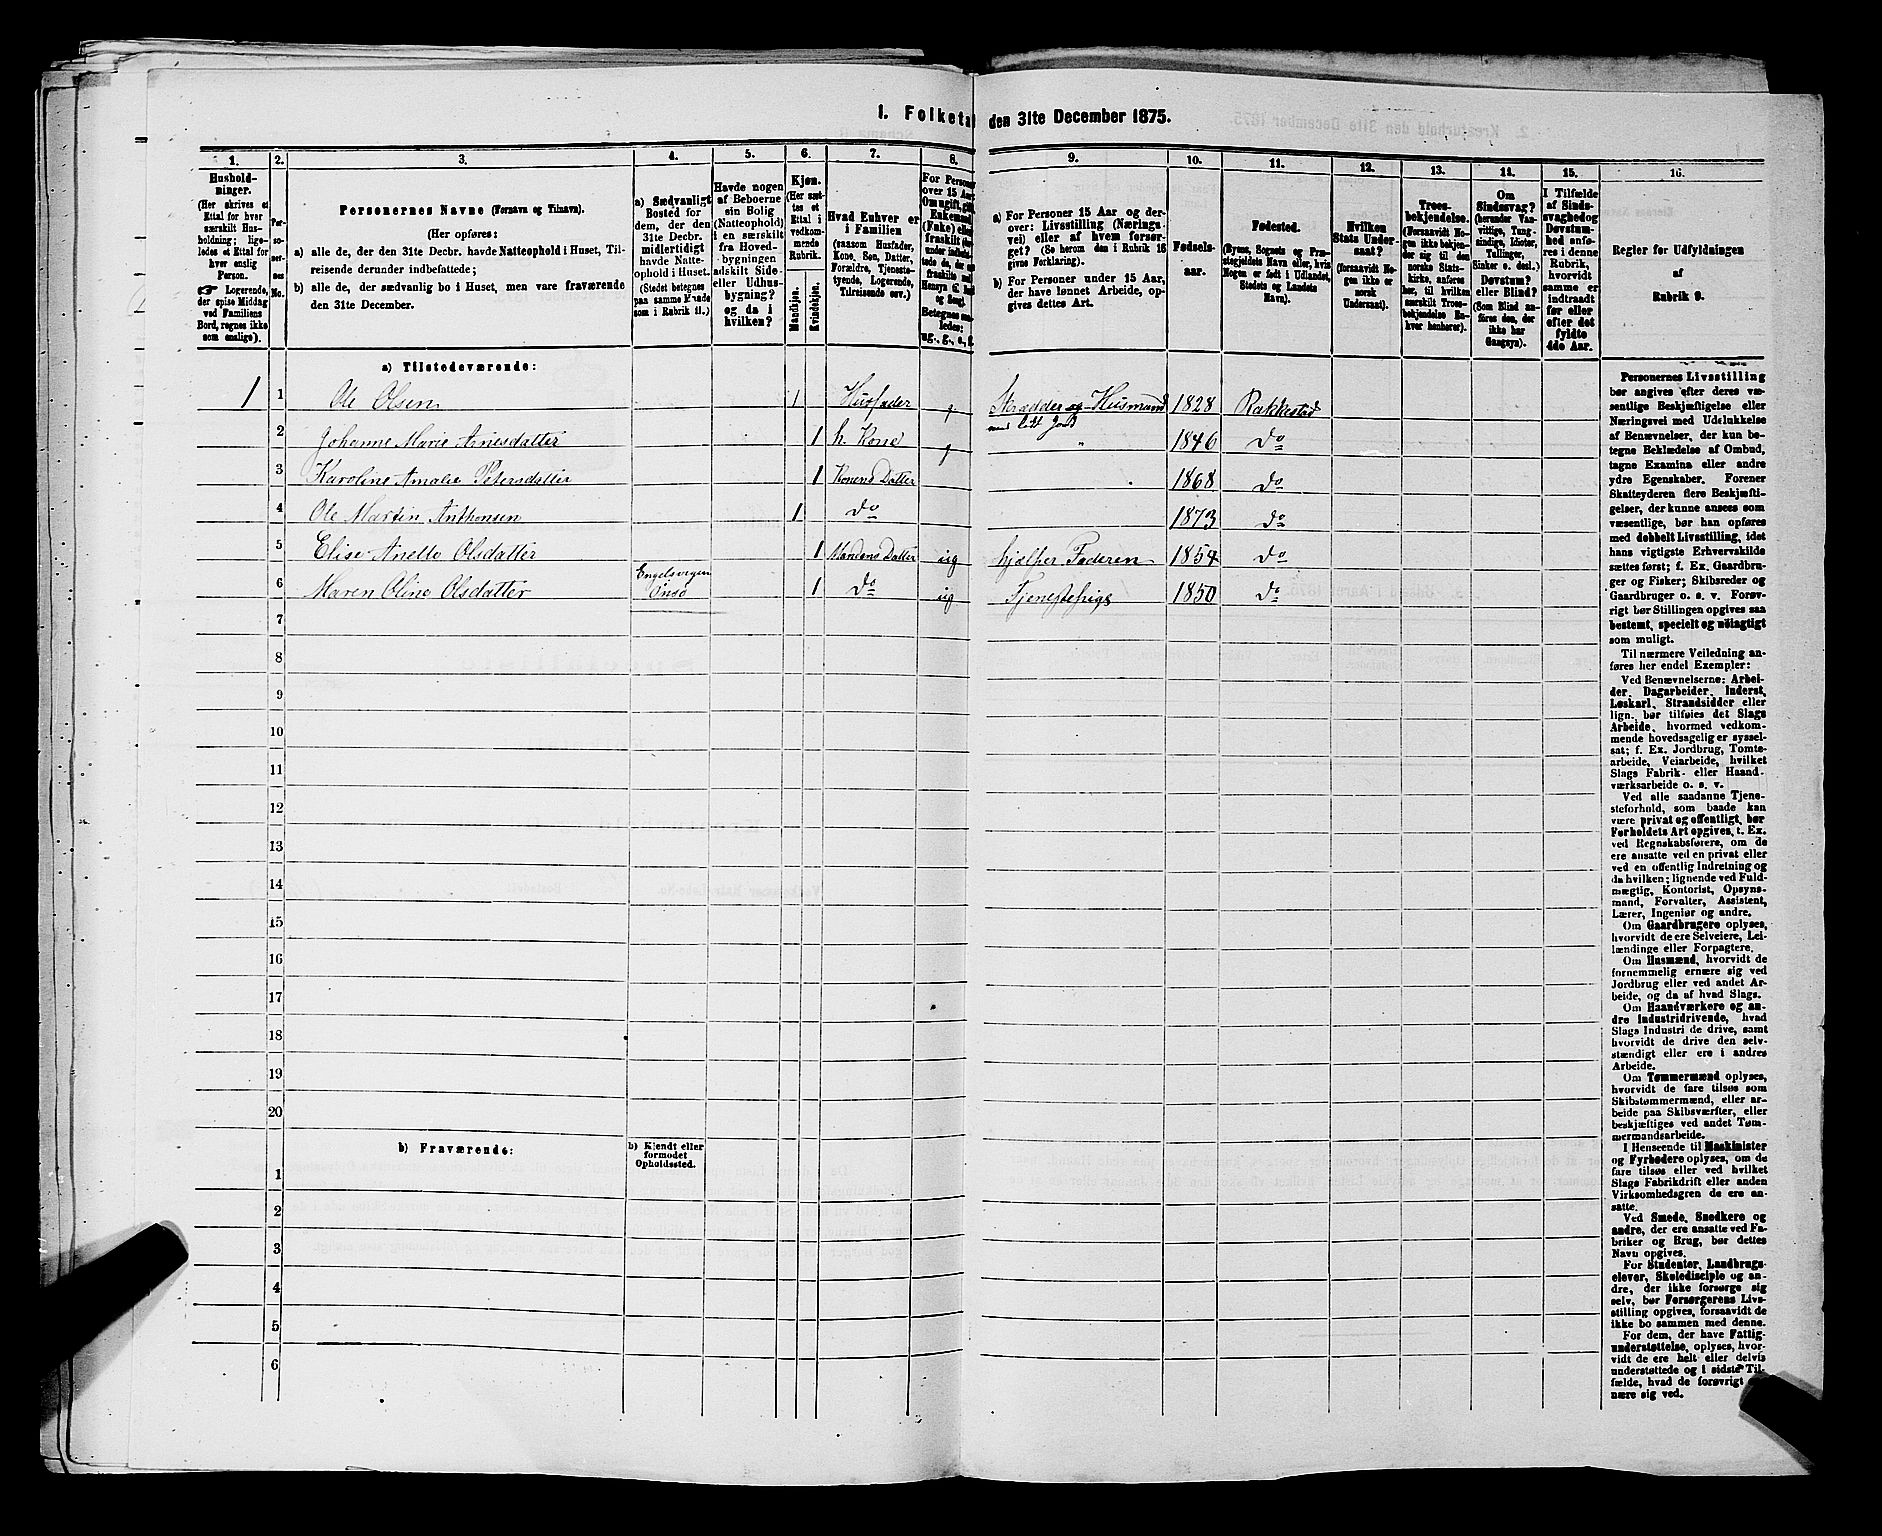 1. Folketal den 31te December 1875.
1. 2. 3. 4. 5. 6. 7. 8. 9. 10. 11. 12. 13. 14. 15. 16.
Hushold-
ninger.
(Her skrives et
Ettal for hver
særskilt Hus-
holdning; lige-
ledes et Ettal for
hver enslig
Person.
☞ Logerende,
der spise Middag
ved Familiens
Bord, regnes ikke
som enslige).
Per-
so-
ner-
nes
No.
Personernes Navne (Fornavn og Tilnavn).
(Her opføres:
a) alle de, der den 31te Decbr. havde Natteophold i Huset, Til-
reisende derunder indbefattede;
b) alle de, der sædvanlig bo i Huset, men vare fraværende
den 31te December.
a) Sædvanligt
Bosted for
dem, der den
31te Decbr.
midlertidigt
havde Natte-
ophold i Huset.
(Stedet betegnes
paa samme Maade
som i Rubrik 11.)
Havde nogen
af Beboerne
sin Bolig
(Natteophold)
i en særskilt
fra Hoved-
bygningen
adskilt Side-
eller Udhus-
bygning?
og da i
hvilken?
Kjøn.
(Her sæt-
tes et
Ettal i
vedkom-
mende
Rubrik.
Mandkjøn.
Kvindekjøn.
Hvad Enhver er
i Familien
(saasom Husfader,
Kone, Søn, Datter,
Forældre, Tjeneste-
tyende, Logerende,
Tilreisende osv.)
For Personer
over 15 Aar:
Om ugift, gift,
Enkemand
(Enke) eller
fraskilt
Betegnes saa-
ledes:
ug., g., e., f.
a) For Personer 15 Aar og der-
over: Livsstilling (Nærings-
vei) eller af hvem forsør-
get? (Se herom den i Rubrik 16
gives Forklaring).
b) For Personer under 15 Aar,
der have lønnet Arbeide, op-
gives dettes Art.
Fødsels-
aar.
Fødested.
(Byens, Sognets og Præ-
stegjeldets Navn eller, hvis
Nogen er født i Udlandet,
Stedets og Landets
Navn).
Hvilken
Stats Under-
saat?
(forsaavidt No-
gen ikke er
norsk
Undersaat).
Troes-
bekjendelse.
(Forsaavidt No-
gen ikke bekjen-
der sig til den
norske Stats-
kirke, anføres
her, til hvilken
særskilt Troes-
bekjendelse En-
hver henhører).
Om
Sindssvag?
(herunder Van-
vittige, Tung-
sindige, Idioter,
Tullinger,
Sinker o. desl.)
Døvstum?
eller Blind?
(Som Blind an-
føres den, der
ikke har
Gangsyn).
I Tilfælde
af Sinds-
svaghed og
Døvstum-
hed anfø-
res i denne
Rubrik,
hvorvidt
samme er
indtraadt
før eller
efter det
fyldte
4de Aar.
Regler for Udfyldningen
af
Rubrik 9.
a) Tilstedeværende:
1 1 Ole Olsen 1 Husfader g. Skrædder og Husmand 1828 Rakkestad
med lidt Jord
2 Johanne Marie Arnesdatter 1 h. Kone g " 1846 Do
3 Karoline Amalie Petersdatter 1 Konens Datter 1868 Do
4 Ole Martin Anthonsen 1 Do 1873 Do
5 Elise Anette Olsdatter 1 Mandens Datter ug hjælper Faderen 1854 Do
6 Maren Oline Olsdatter Engelsvigen Onsø 1 Do ug Tjenestepige 1850 Do
7
8
9
10
11
12
13
14
15
16
17
18
19
20
b) Fraværende:
b) Kjendt eller
formodet
Opholdssted.
1
2
3
4
5
6
Personernes Livsstilling
bør angives efter deres væ-
sentlige Beskjæftigelse eller
Næringsvei med Udelukkelse
af Benævnelser, der kun be-
tegne Beklædelse af Ombud,
tagne Examina eller andre
ydre Egenskaber. Forener
Skatteyderen flere Beskjæfti-
gelser, der kunne ansees som
væsentlige, bør han opføres
med dobbelt Livsstilling, idet
hans vigtigste Erhvervskilde
sættes først; f. Ex. Gaardbru-
ger og Fisker; Skibsreder og
Gaardbruger o. s. v. Forøv-
rigt bør Stillingen opgives saa
bestemt, specielt og nöiagtigt
som muligt.
Til nærmere Veiledning an-
føres her endel Exempler:
Ved Benævnelserne: Arbei-
der, Dagarbeider, Inderst,
Løskarl, Strandsidder eller
lign. bør tilføies det Slags
Arbeide, hvormed vedkom-
mende hovedsagelig er syssel-
sat; f. Ex. Jordbrug, Tomte-
arbeide, Veiarbeide, hvilket
Slags Fabrik- eller Haand-
værksarbeide o. s. v.
Ved alle saadanne Tjene-
steforhold, som baade kan
være privat og offentligt, bør
Forholdets Art opgives, t. Ex.
ved Regnskabsførere, om de
ere ansatte ved en privat eller
ved en offentlig Indretning og
da hvilken; lignende ved Fuld-
mægtig, Kontorist, Opsyns-
mand, Forvalter, Assistent,
Lærer, Ingeniør og andre.
Om Gaardbrugere oplyses,
hvorvidt de ere Selveiere, Lei-
lændinge eller Forpagtere.
Om Husmænd, hvorvidt de
fornemmelig ernære sig ved
Jordbrug eller ved andet Ar-
beide, og da af hvad Slags.
Om Haandværkere og an-
dre Industridrivende, hvad
Slags Industri de drive, samt
hvorvidt de drive den selv-
stændigt eller ere i andres
Arbeide.
Om Tømmermænd oplyses,
hvorvidt de fare tilsøs som
Skibstømmermænd, eller ar-
beide paa Skibsværfter, eller
beskjæftiges ved andet Tøm-
mermandsarbeide.
I Henseende til Maskinister
og Fyrbødere oplyses, om de
fare tilsøs eller ved hvilket
Slags Fabrikdrift eller anden
Virksomhedsgren de ere an-
satte.
Ved Smede, Snedkere og
andre, der ere ansatte ved Fa-
briker og Brug, bør dettes
Navn opgives.
For Studenter, Landbrugs-
elever, Skoledisciple og an-
dre, der ikke forsørge sig
selv, bør Forsørgerens Livs-
stilling opgives, forsaavidt de
ikke bo sammen med denne.
For dem, der have Fattig-
understøttelse, oplyses, hvor-
vidt de ere helt eller delvis
understøttede og i sidste Til-
fælde, hvad de forøvrigt er-
nære sig ved.